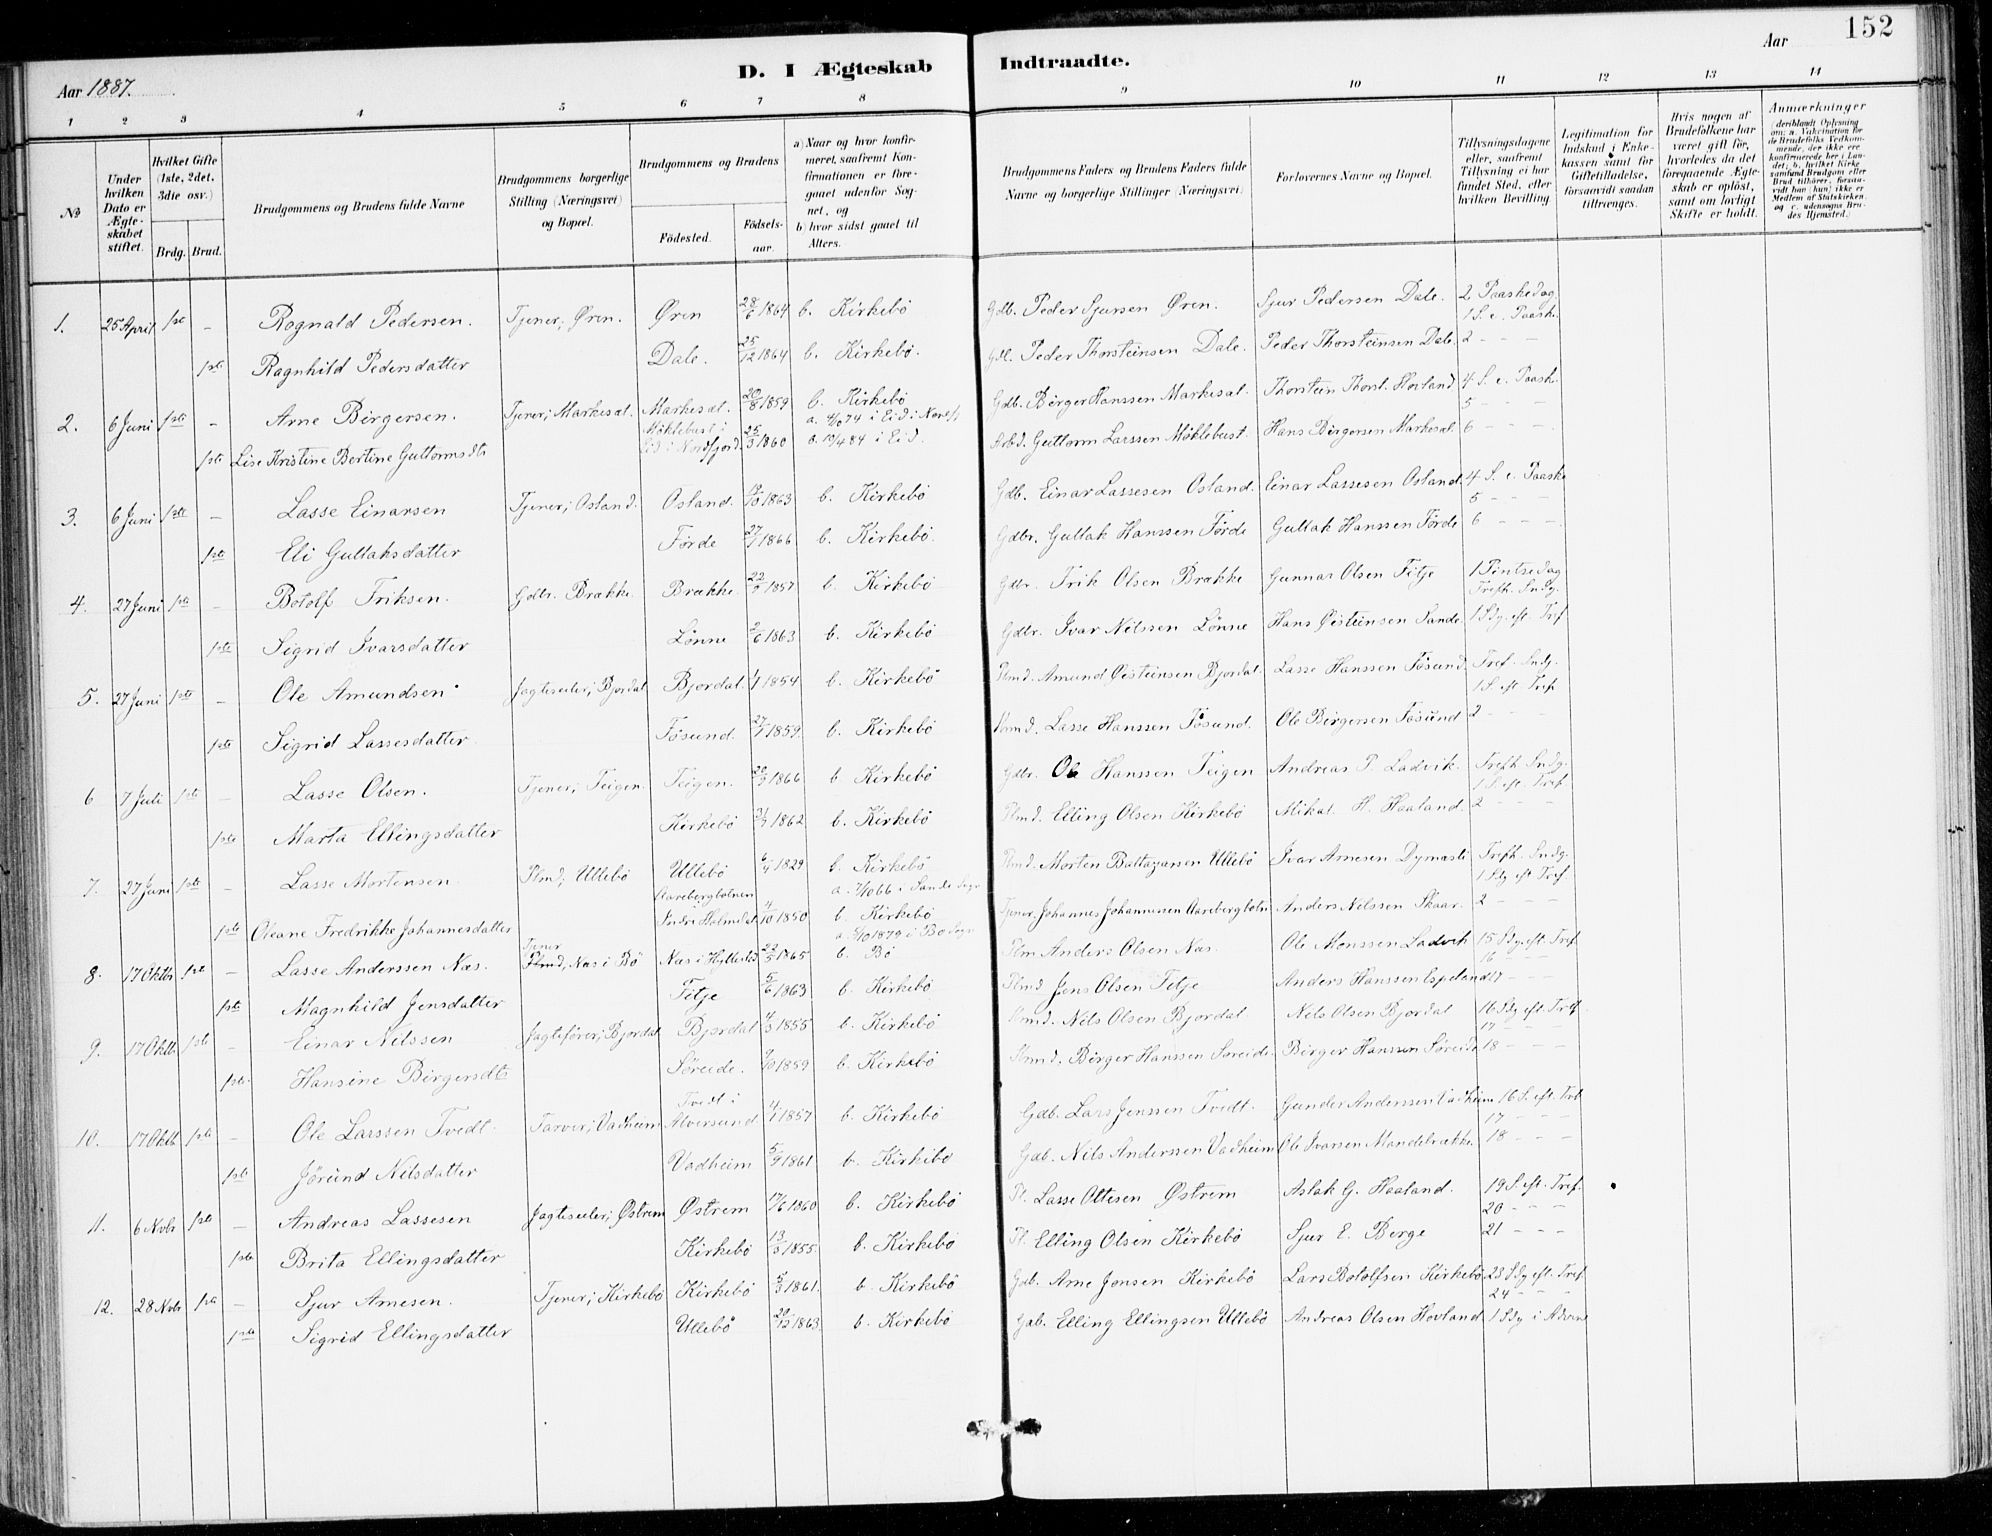 152
D. I Ægteskab Indtraadte.
Aar 1887.
Aar
1 2 3 4 5 6 7 8 9 10 11 12 13 14
No
Under hvilken Dato er Ægteskabet stiftet.
Hvilket Gifte (1ste, 2det, 3die osv.)
Brdg. Brud.
Brudgommens og Brudens fulde Navne
Brudgommens borgerlige Stilling (Næringsvei) og Bopæl.
Brudgommens og Brudens
Fødested.
Fødselsaar.
a) Naar og hvor konfirmeret, saafremt Konfirmationen er foregaaet udenfor Sognet, og
b) hvor sidst gaaet til Alters.
Brudgommens Faders og Brudens Faders fulde Navne og borgerlige Stillinger (Næringsvei)
Forlovernes Navne og Bopæl.
Tillysningsdagene eller, saafremt Tillysning ei har fundet Sted, efter hvilken Bevilling.
Legitimation for Indskud i Enkekassen samt for Giftetilladelse, forsaavidt saadan tiltrænges.
Hvis nogen af Brudefolkene har været gift før, hvorledes da det foregaaende Ægteskab er opløst, samt om lovligt Skifte er holdt.
Anmærkninger (deriblandt Oplysning om: a. Vakcination for de Brudefolks Vedkommende, der ikke ere konfirmerede her i Landet; b. hvilket Kirkesamfund Brudgom eller Brud tilhører, forsaavidt han (hun) ikke er Medlem af Statskirken, og c. udensogns Brudes Hjemsted.)
1. 25 April 1ste - Rognald Pedersen. Tjener; Øren. Øren 28/6 1864 b. Kirkebø Gdb. Peder Sjursen Øren. Sjur Pedersen Dale. 2 Paaskedag
1 S. e. Paask.
1ste Ragnhild Pedersdatter Dale. 25/12 1864 b. Kirkebø. Peder Thorsteinsen Dale. Peder Thorsteinsen Dale. 2 - - -
2. 6 Juni 1ste - Arne Birgersen. Tjener; Markesæt. Markesæt. 20/8 1859 b. Kirkebø Gdb. Birger Hanssen Markesat. Thorstein Thorst. Hovland 4 S. e. Paask.
5 - - -
1ste Lise Kristine Bertine Guttormsdt. Møklebust i Eid i Nordfjord 25/3 1860 a. 4/10 74 i Eid i Nordf.
b. 19/4 84 i Eid. Guttorm Larssen Møklebust. Hans Birgersen Markesæt. 6 - - -
3. 6 Juni 1ste - Lasse Einarsen Tjener; Osland. Osland. 19/10 1863 b. Kirkebø Gdb. Einar Lassesen Osland. Einar Lassesen Osland 4 S. e. Paaske
5 - - -
1ste Eli Gullaksdatter Førde 27/7 1866 b. Kirkebø. Gdbr. Gullak Hanssen Førde Gullak Hanssen Førde 6 - - -
4. 27 Juni 1ste - Botolf Eriksen. Gdbr. Brække. Brække. 1857 b. Kirkebø Gdbr. Erik Olsen Brække Gunnar Olsen Fitje 1 Pintsedag
Trefh. Sndg.
1ste Sigrid Ivarsdatter Lønne 2/6 1863 b. Kirkebø Gdbr. Ivar Nilssen Lønne Hans Øisteinsen Sande. 1 Sdg. eft. Tref
5. 27 Juni 1ste - Ole Amundsen Jagteseiler; Bjordal. Bjordal. 1854 b. Kirkebø Plmd. Amund Øisteinsen Bjordal. Lasse Hanssen Føsund. Tref. Sndg.
1 S. eft. Tref.
1ste Sigrid Lassesdatter Føsund. 27/7 1859. b. Kirkebø Lasse Hanssen Føsund. Ole Birgersen Føsund 2 - - -
6 7 Juli 1ste - Lasse Olsen. Tjener; Teigen. Teigen. 1866 b. Kirkebø Gdbr. Ole Hanssen Teigen Andreas P. Ladvik. Trefh. Sndg.
1 S. eft. Tref.
1ste Marta Ellingsdatter Kirkebø 1862 b. Kirkebø Plmd. Elling Olsen Kirkebø Mikal H. Haaland. 2 - - -
7. 27 Juni 1ste - Lasse Mortensen Plmd; Ullebø Ullebø 1829 b. Kirkebø Plmd. Morten Baltazarsen Ullebø Ivar Arnesen Trefh. Sndg.
1 Sdg eft Tref
1ste Oleane Fredrikke Johannesdatter Aarebergbotnen Indre Holmedal 4/10 1850 a. 7/10 66 i Sande Sogn
b. Kirkebø Tjener, Johannes Johannesen Aarebergbotn Anders Nilssen Skaar. 2 - - -
8. 17 Oktbr 1ste - Lasse Anderssen Næs. Tjener Plmd, Næs i Bø Næs i Hyllestad 1865 a. 5/10 1879 i Bø Sogn
b. Bø Anders Olsen Næs. Ole Monssen Ladvik 15 Sdg. eft. Tref.
16 - - -
1ste Magnhild Jensdatter Fitje 5/6 1863 b. Kirkebø Plmd Jens Olsen Fitje Anders Hanssen Espeland 17 - - -
9. 17 Oktb. 1ste - Einar Nilssen Jagtefører; Bjordal Bjordal 4/3 1855 b. Kirkebø Nils Olsen Bjordal. Nils Olsen Bjordal 16 Sdg eft. Tref.
17 - - -
1ste Hansine Birgersdt. Søreide. 1859 b. Kirkebø Birger Hanssen Søreide. Birger Hanssen Søreide 18 - - -
10. 17 Oktb. 1ste - Ole Larssen Tvedt. Farver; Vadheim Tvedt i Alversund. 1857 b. Kirkebø Gdb. Lars Jenssen Tvedt. Gunder Anderssen Vadheim 16 S. eft. Tref
17 - - -
1ste Jørund Nilsdatter Vadheim 5/9 1861 b. Kirkebø Gdb. Nils Anderssen Vadheim Ole Ivarsen Mandebrække 18 - - -
11. 6 Novbr 1ste - Andreas Lassesen Jagteseiler; Østrem Østrem 17/6 1860 b. Kirkebø Pl. Lasse Oltesen Østrem Aslak G. Haaland. 19 S. eft. Tref.
20 - - -
1ste Brita Ellingsdatter Kirkebø 13/3 1855. b. Kirkebø Pl. Elling Olsen Kirkebø Sjur E. Berge 21 - - -
12. 28 Novbr 1ste - Sjur Arnesen. Tjener; Kirkebø Kirkebø 5/3 1861. b. Kirkebø Gdb. Arne Jonsen Kirkebø Lars Botolfsen Kirkebø 23 Sdg eft. Tref.
24 - - -
1ste Sigrid Ellingsdatter Ullebø 20/12 1863. b. Kirkebø Gdb. Elling Ellingsen Ullebø Andreas Olsen Hovland 1 Sdg i Advent